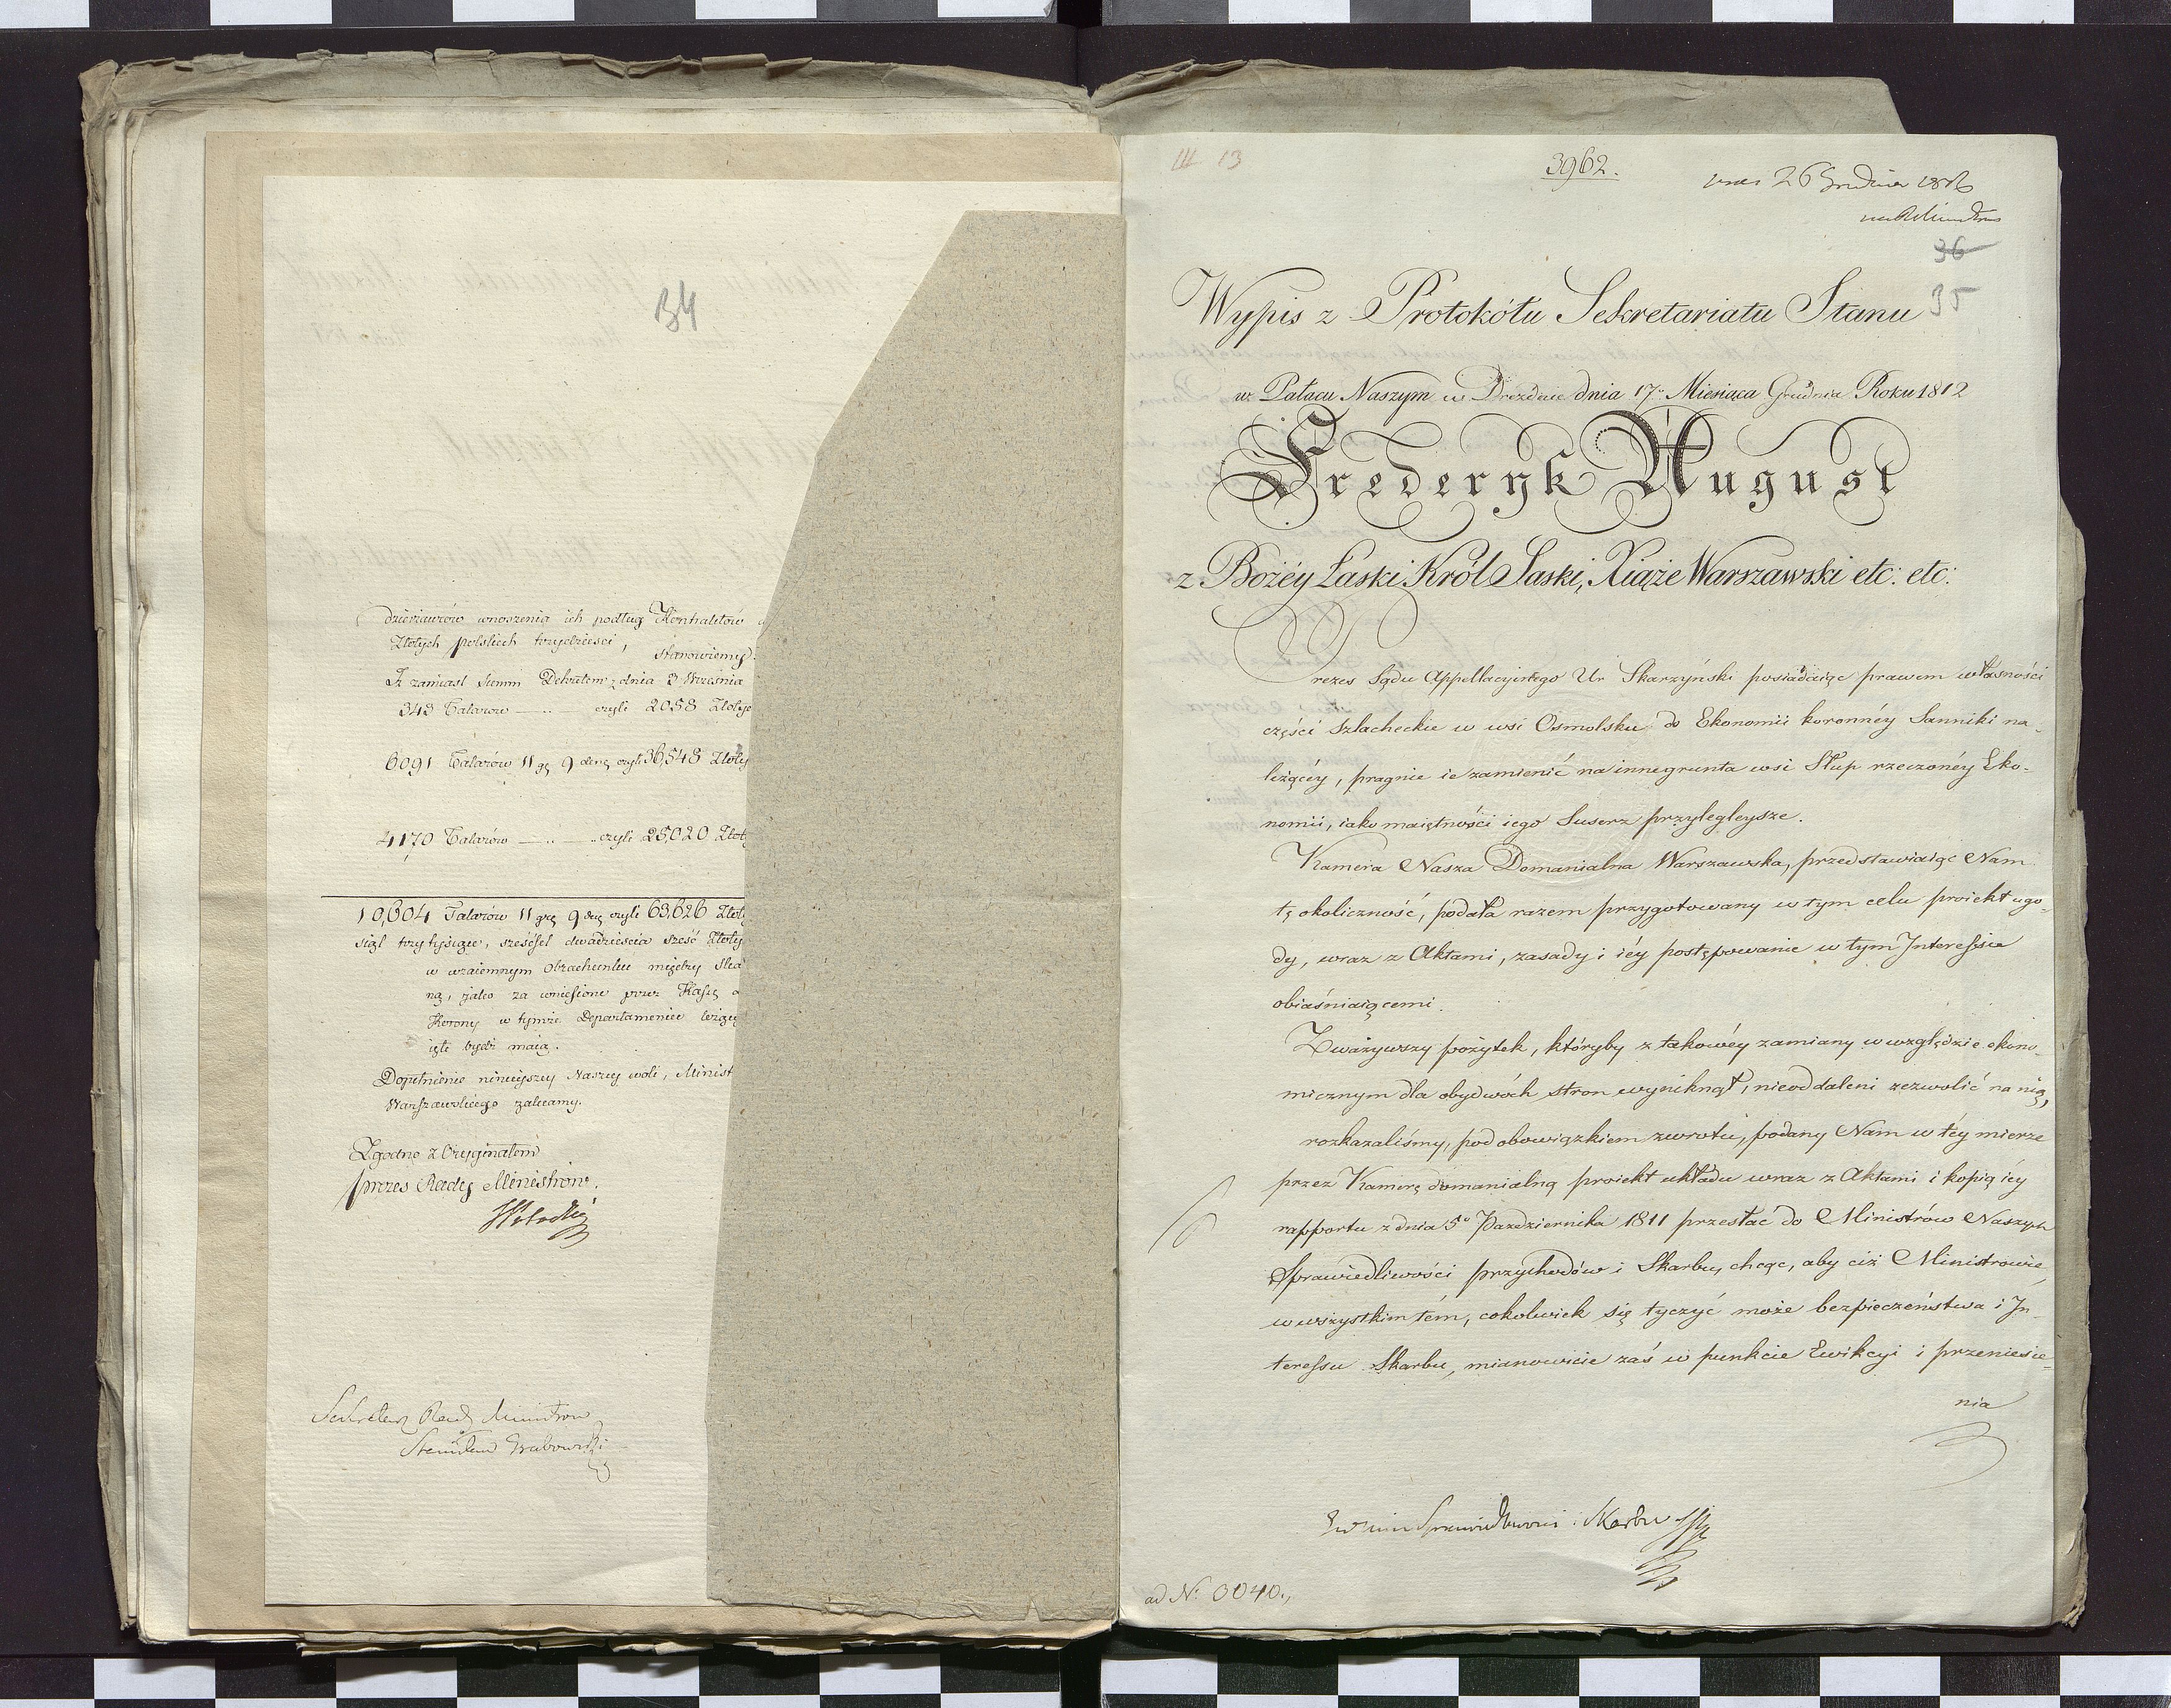 34
dzierżawców wnoszenia ich podług Kontraktów
Złotych polskich trzydzieści, stanowiemy.
Iż zamiast Summ Dekretem z dnia 3 Września
343 Talarów —..— czyli 2058 Złotyc
6091 Talarów 11 gę 9 deną czyli 36,548 Złoty
4170 Talarów —..—.. czyli 25,020 Złot
10,604 Talarów 11 grę 9 deę czyli 63,626 Złoty
siąt trzy tysiące, sześćset dwadzieścia sześć Złoty
w wzaiemnym obrachunku między Ska
ną, jako za wniesione przez Kassę
Korony w tymże Departamencie leżąc
ięte bydź maią.
Dopełnienie ninieyszey Naszey woli, Minist
Warszawskiego zalecamy.
Zgodno z Oryginałem
prezes Rady Ministrów.
Sekretarz Rady Ministrow
Stanisław Grabowski
III 13
3962.
26 Grudnia 1812
36
35
Wypis z Protokółu Sekretariatu Stanu
w Pałacu Naszym w Dreźdnie dnia 17º Miesiąca Grudnia Roku 1812
Frederyk August
z Bożéy Łaski Król Saski, Xiąże Warszawski etc: etc:
Prezes Sądu Appellacyinego Ur Skarzyński posiadaiąc prawem własności
części szlacheckie w wsi Osmolsku do Ekonomii koronnéy Sanniki na-
leżącéy, pragnie ie zamienić na inne grunta wsi Słup rzeczonéy Eko-
nomii, iako maiętności iego Suserz przyległeysze.
Kamera Nasza Domanialna Warszawska, przedstawiaiąc Nam
tę okoliczność, podała razem przygotowany w tym celu proiekt ugo-
dy, wraz z Aktami, zasady i iéy postępowanie w tym Interessie
obiaśniaiącemi.
Zważywszy pożytek, któryby z takowéy zamiany w względzie ekono-
micznym dla obydwóch stron wyniknął, nieoddaleni zezwolić na nią,
rozkazaliśmy, pod obowiązkiem zwrotu, podany Nam w téy mierze
przez Kamerę domanialną proiekt układu wraz z Aktami i kopią iéy
rapportu z dnia 5º Pazdziernika 1811 przesłać do Ministrów Naszych
Sprawiedliwości przychodów i Skarbu, chcąc, aby ciż Ministrowie,
w wszystkim tém, cokolwiek się tyczyć może bezpieczeństwa i In-
teressu Skarbu, mianowicie zaś w punkcie Ewikcyi i przeniesie-
nia
Sprawiedliwosci i Skarbu
ad N: 0040.,